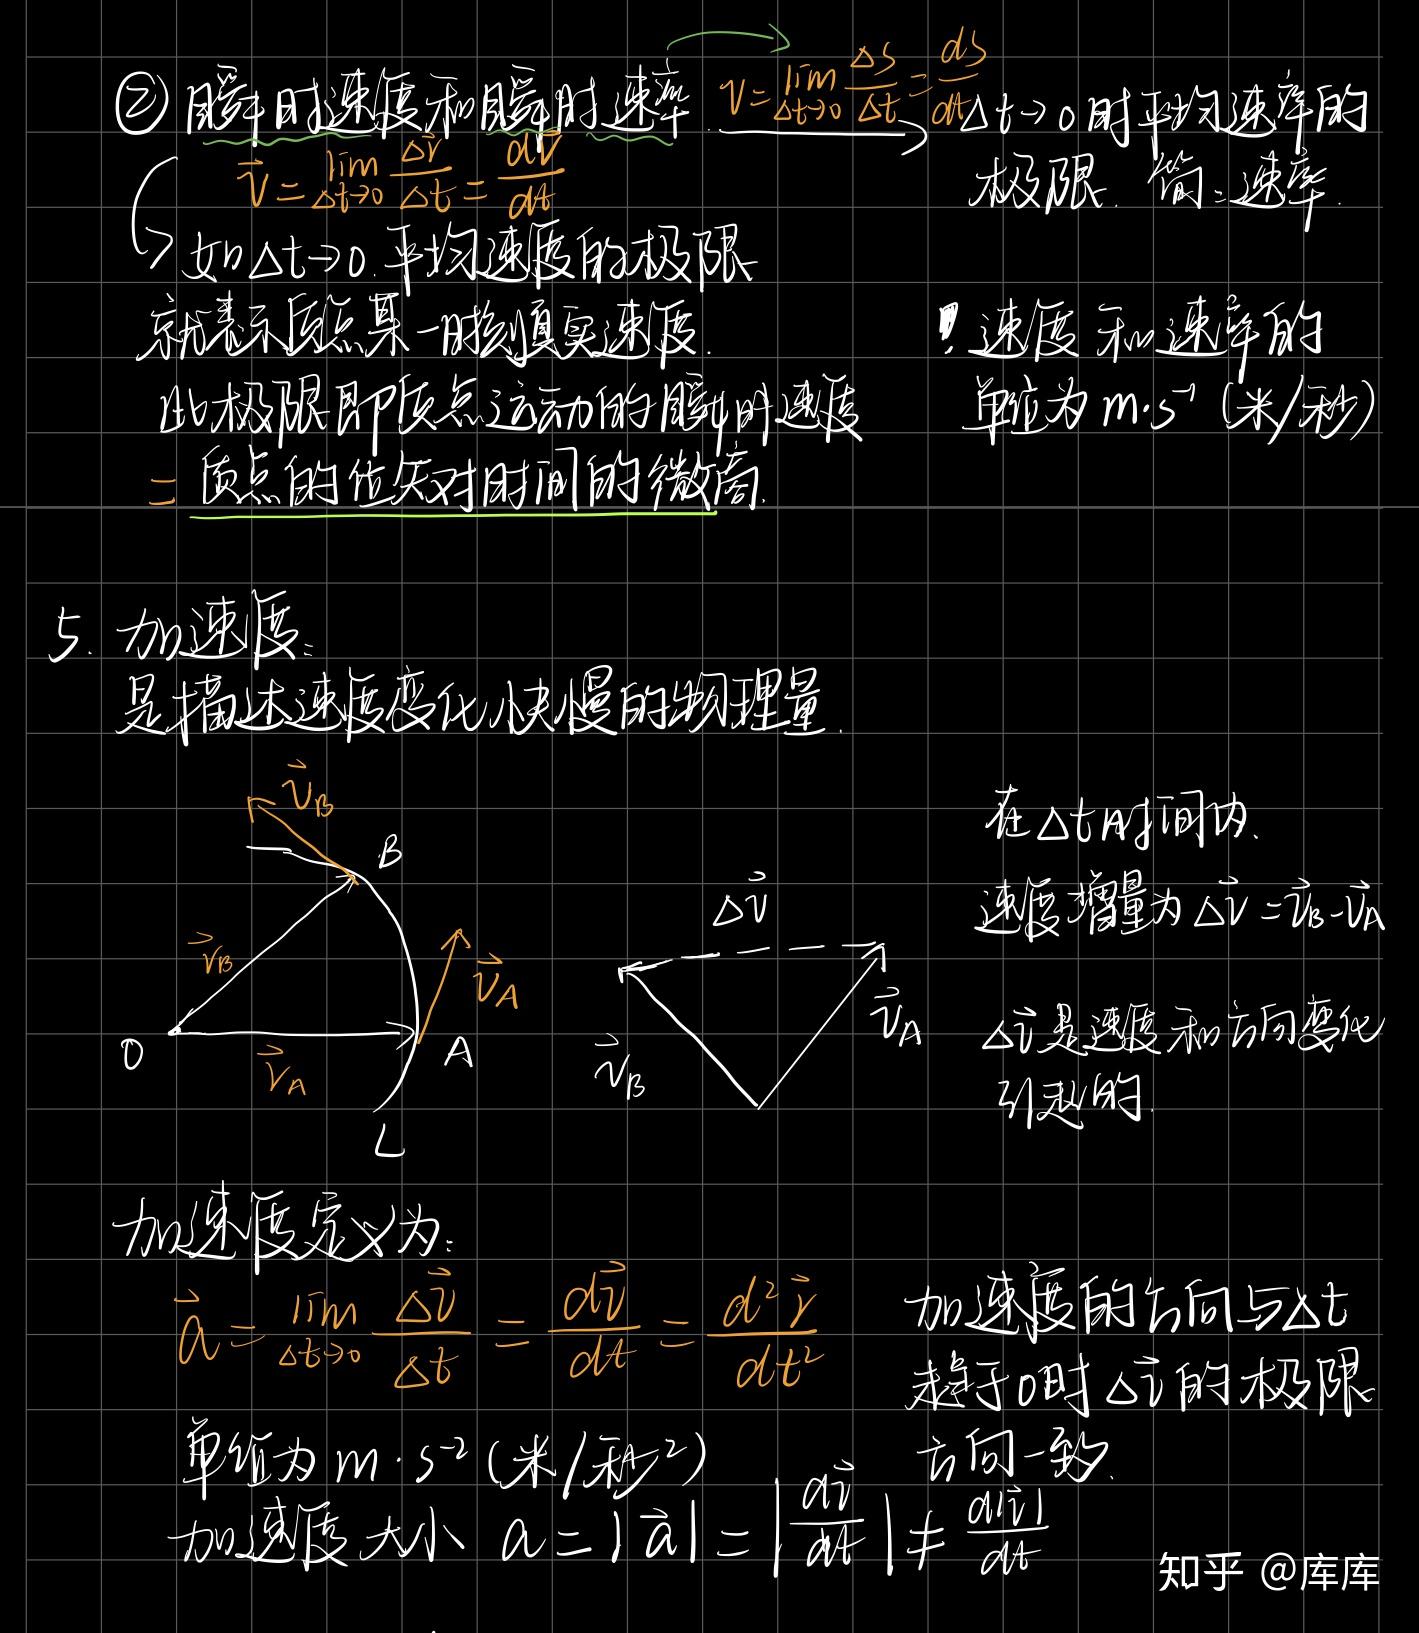 ② 瞬时速度和瞬时速率 v = lim Δt→0 Δs/Δt = ds/dt
Δt→0时平均速率的
极限. 简:速率.
v⃗ = lim Δt→0 Δr⃗/Δt = dr⃗/dt
如Δt→0.平均速度的极限
就表示质点某一时刻真实速度.
此极限即质点运动的瞬时速度
= 质点的位矢对时间的微商.
! 速度和速率的
单位为 m·s⁻¹ (米/秒)
5. 加速度:
是描述速度变化快慢的物理量.
v⃗B
B
r⃗B
v⃗A
O
r⃗A
A
L
Δv⃗
v⃗B
v⃗A
在Δt时间内.
速度增量为 Δv⃗ = v⃗B - v⃗A
Δv⃗是速度和方向变化
引起的.
加速度定义为:
a⃗ = lim Δt→0 Δv⃗/Δt = dv⃗/dt = d²r⃗/dt²
加速度的方向与Δt
趋于0时Δv⃗的极限
方向一致.
单位为 m·s⁻² (米/秒²)
加速度大小 a = |a⃗| = |dv⃗/dt| ≠ d|v⃗|/dt
知乎 @库库